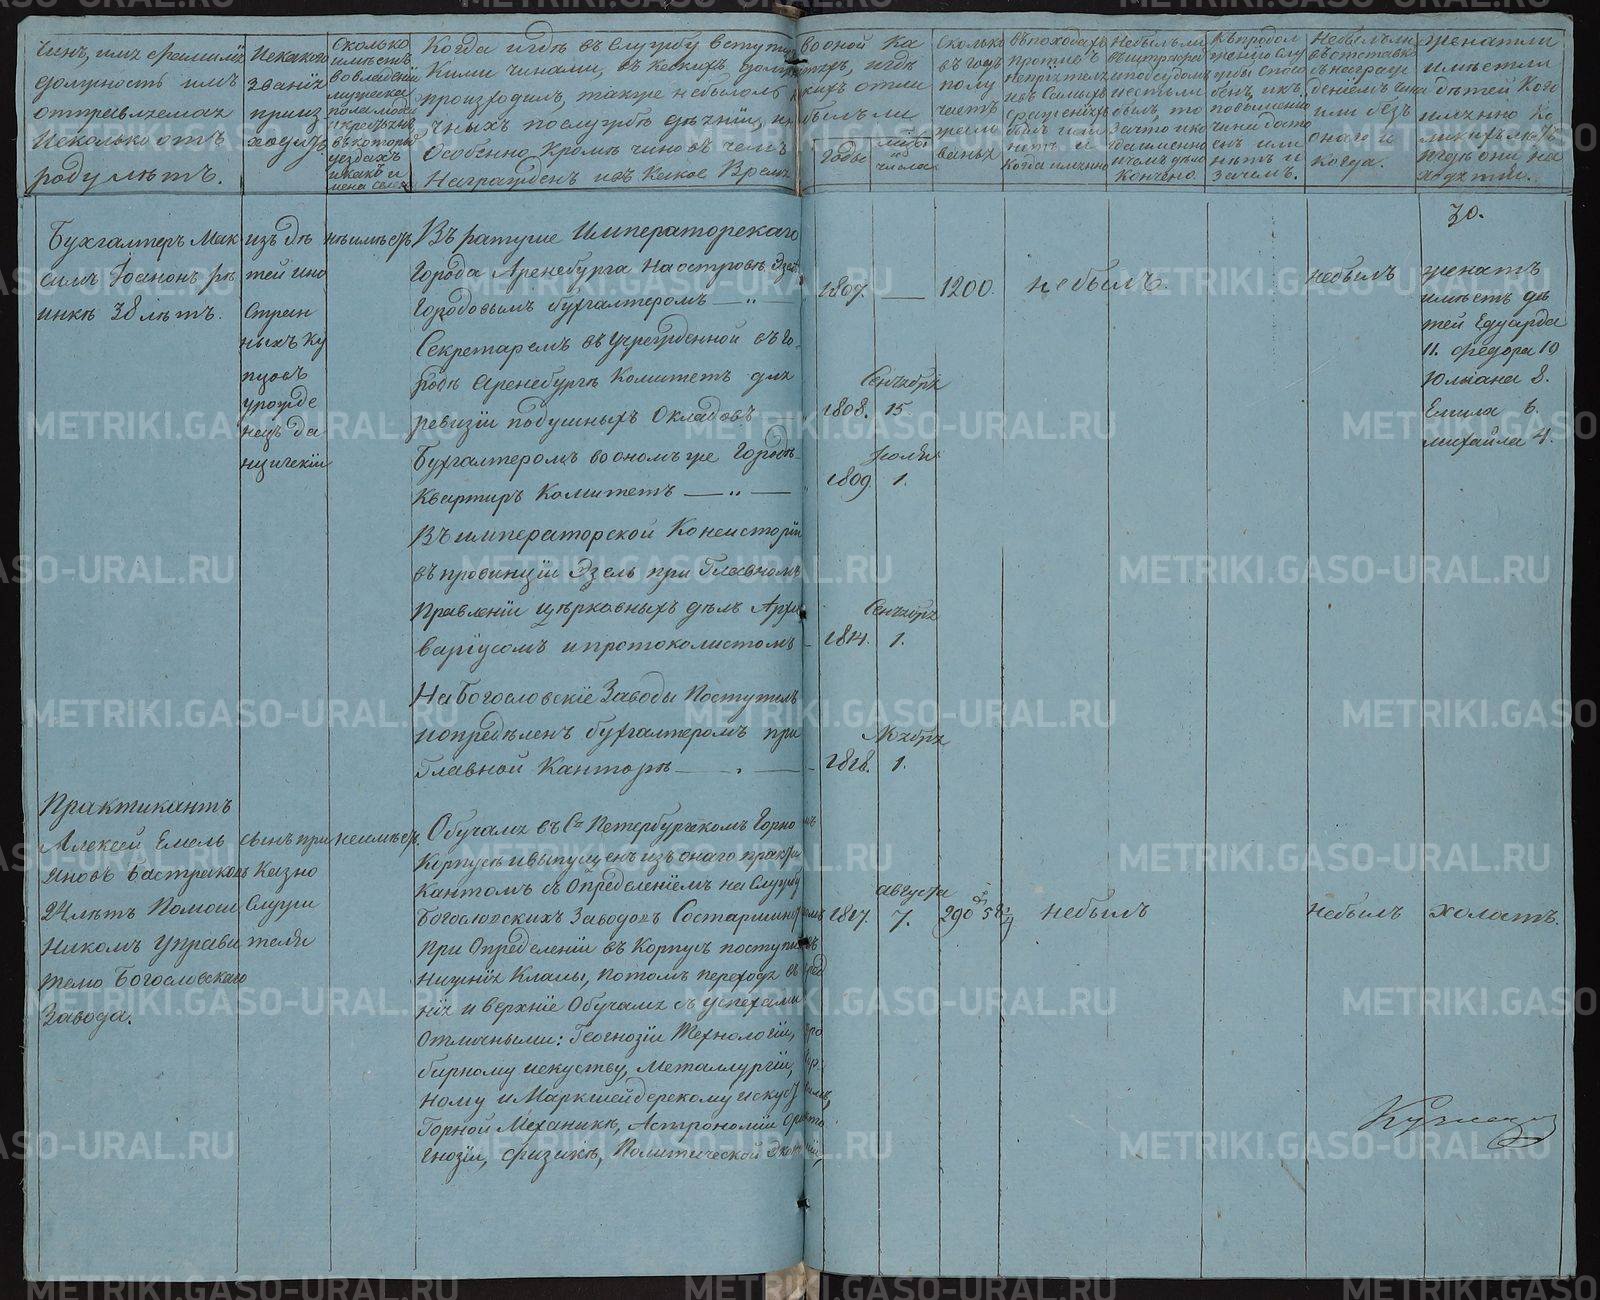 Чинъ, имя фамилія
должность имъ
отправляемая
и сколько отъ
роду лѣтъ.
Изкакого
званія
произ
ходитъ
Сколько
имѣетъ
во владѣніи
мужеска
пола людей
и крестьянъ
въ которы
уездахъ
и како и
мена селе
Когда и гдѣ въ службу вступилъ во оной ка
кими чинами, въ какихъ должностяхъ, и гдѣ
произходилъ, также небылоль какихъ отли
чныхъ послужбѣ дѣяній, и небылъ ли
Особенно кромѣ чиновъ чемъ
Награжденъ и въ какое Время
Годы
числа
Сколько
въ годъ
полу
чаетъ
жало
ванья
въ походахъ
противъ
непріятеля
и въ самыхъ
сраженіяхъ
былъ или
нетъ и
Когда имянно
Небылъ ли
въ штрафа
и подсудомъ
и естьли
былъ, то
за что и ко
гда имянно
и чемъ дѣло
кончено
Къ продол
женію слу
жбы спосо
бенъ, и къ
повышенію
чина досто
енъ или
нетъ и
зачемъ.
Небылъ ли
въ отставкѣ
съ награж
деніемъ чина
или безъ
онаго и
когда.
Женатъ ли
имѣетъ ли
дѣтей кого
имянно ко
ликихъ лѣтъ
и гдѣ они на
ходятся.
30.
Бухгалтеръ Мак
симъ Іоанонъ рѣ
инкѣ 38 лѣтъ.
изъ дѣ
тей ино
стран
ныхъ ку
пцовъ
урожде
нецъ да
нцигскій
неимѣетъ
Въ ратуше Императорскаго
Города Аренсбурга на островѣ Эзел
Городовымъ бухгалтеромъ — „ —
1807. —
1200.
небылъ.
небылъ
женатъ
имѣетъ дѣ
тей Едуарда
11. Федора 10
Юліана 8.
Емила 6.
михайла 4.
Секретаремъ въ Учрежденной въ Го-
родѣ Аренсбургѣ Комитетъ для
ревизіи подушныхъ Окладовъ
Сентября
1808. 15.
Бухгалтеромъ во ономъ же Городѣ
Квартиръ Комитетъ — „ —
1809. 1.
Въ императорской Консисторіи
въ провинціи Эзель при Главномъ
Правленіи церковныхъ дѣлъ Архи
варіусомъ и протоколистомъ
Сентября
1814. 1.
На Богословскіе Заводы Поступилъ
и опредѣленъ бухгалтеромъ при
Главной Канторѣ
Ноября
1818. 1.
Практикантъ
Алексей Емель
яновъ Бастраковъ
24 лѣтъ Помощ
никомъ управи
телю Богословскаго
Завода.
сынъ при
Казно
Служи
теля
неимѣетъ.
Обучался въ Ст Петербургскомъ Горно
Корпусѣ и выпущенъ изъ онаго практи
кантомъ съ Определеніемъ на Службу
Богословскихъ Заводовъ Состаршинст
При Определеніи въ Корпусъ поступилъ въ
Нижніе Классы, потомъ переходя въ сред
ніе и верхніе Обучался съ успехами
Отличными: Геогнозіи Технологіи, про
бирному искуству, Металлургіи, Гор
ному и Маркшейдерскому искус
Горной Механики, Астрономіи Орикто
гнозіи, физикѣ, Политической Экономіи,
августа
1817. 7.
290
небылъ
небылъ
холостъ.
METRIKI.GASO-URAL.RU